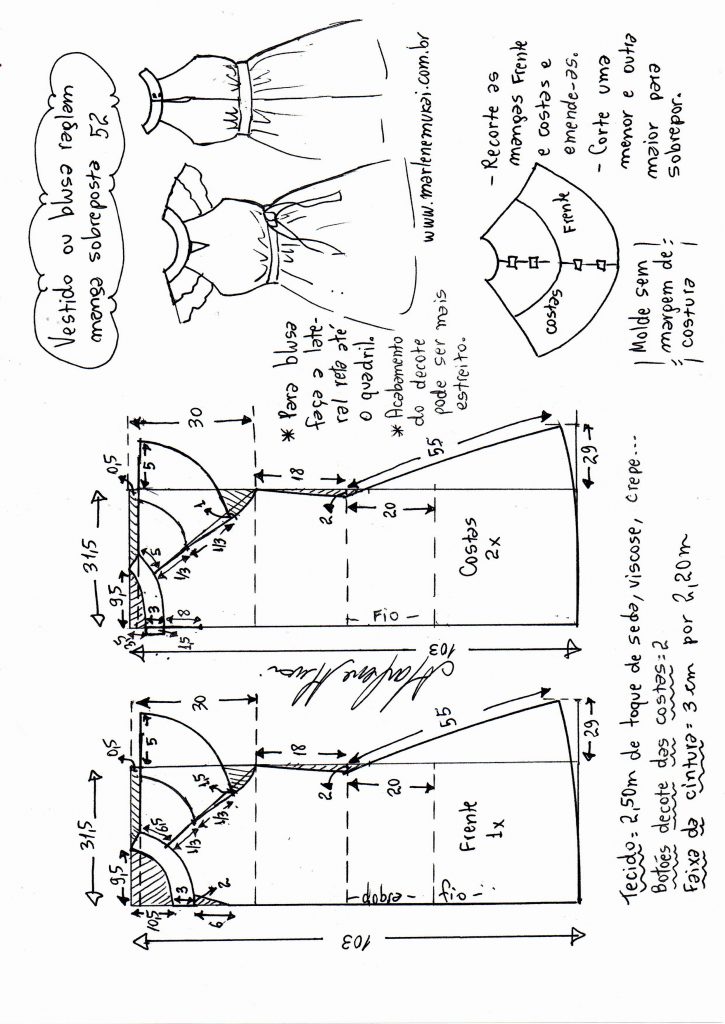 Vestido ou blusa raglam
manga sobreposta 52
www.marlenemukai.com.br
- Recorte as
mangas Frente
e costas e
emende-as.
- Corte uma
menor e outra
maior para
sobrepor.
Frente
costas
Molde sem
margem de
costura
* Para blusa
faça a late-
ral reta até
o quadril.
* Acabamento
do decote
pode ser mais
estreito.
103
31,5
9,5
0,5
30
5
10,5
3
6
2
6,5
1/3
1/3
1,5
18
2
20
55
29
Frente
1x
dobra
fio
103
31,5
9,5
0,5
30
5
3,5
3
1,5
8
5
1/3
1/3
1
18
2
20
55
29
Costas
2x
Fio
Marlene Mukai
Tecido = 2,50m de toque de seda, viscose, crepe...
Botões decote das costas = 2
Faixa da cintura = 3 cm por 2,20m